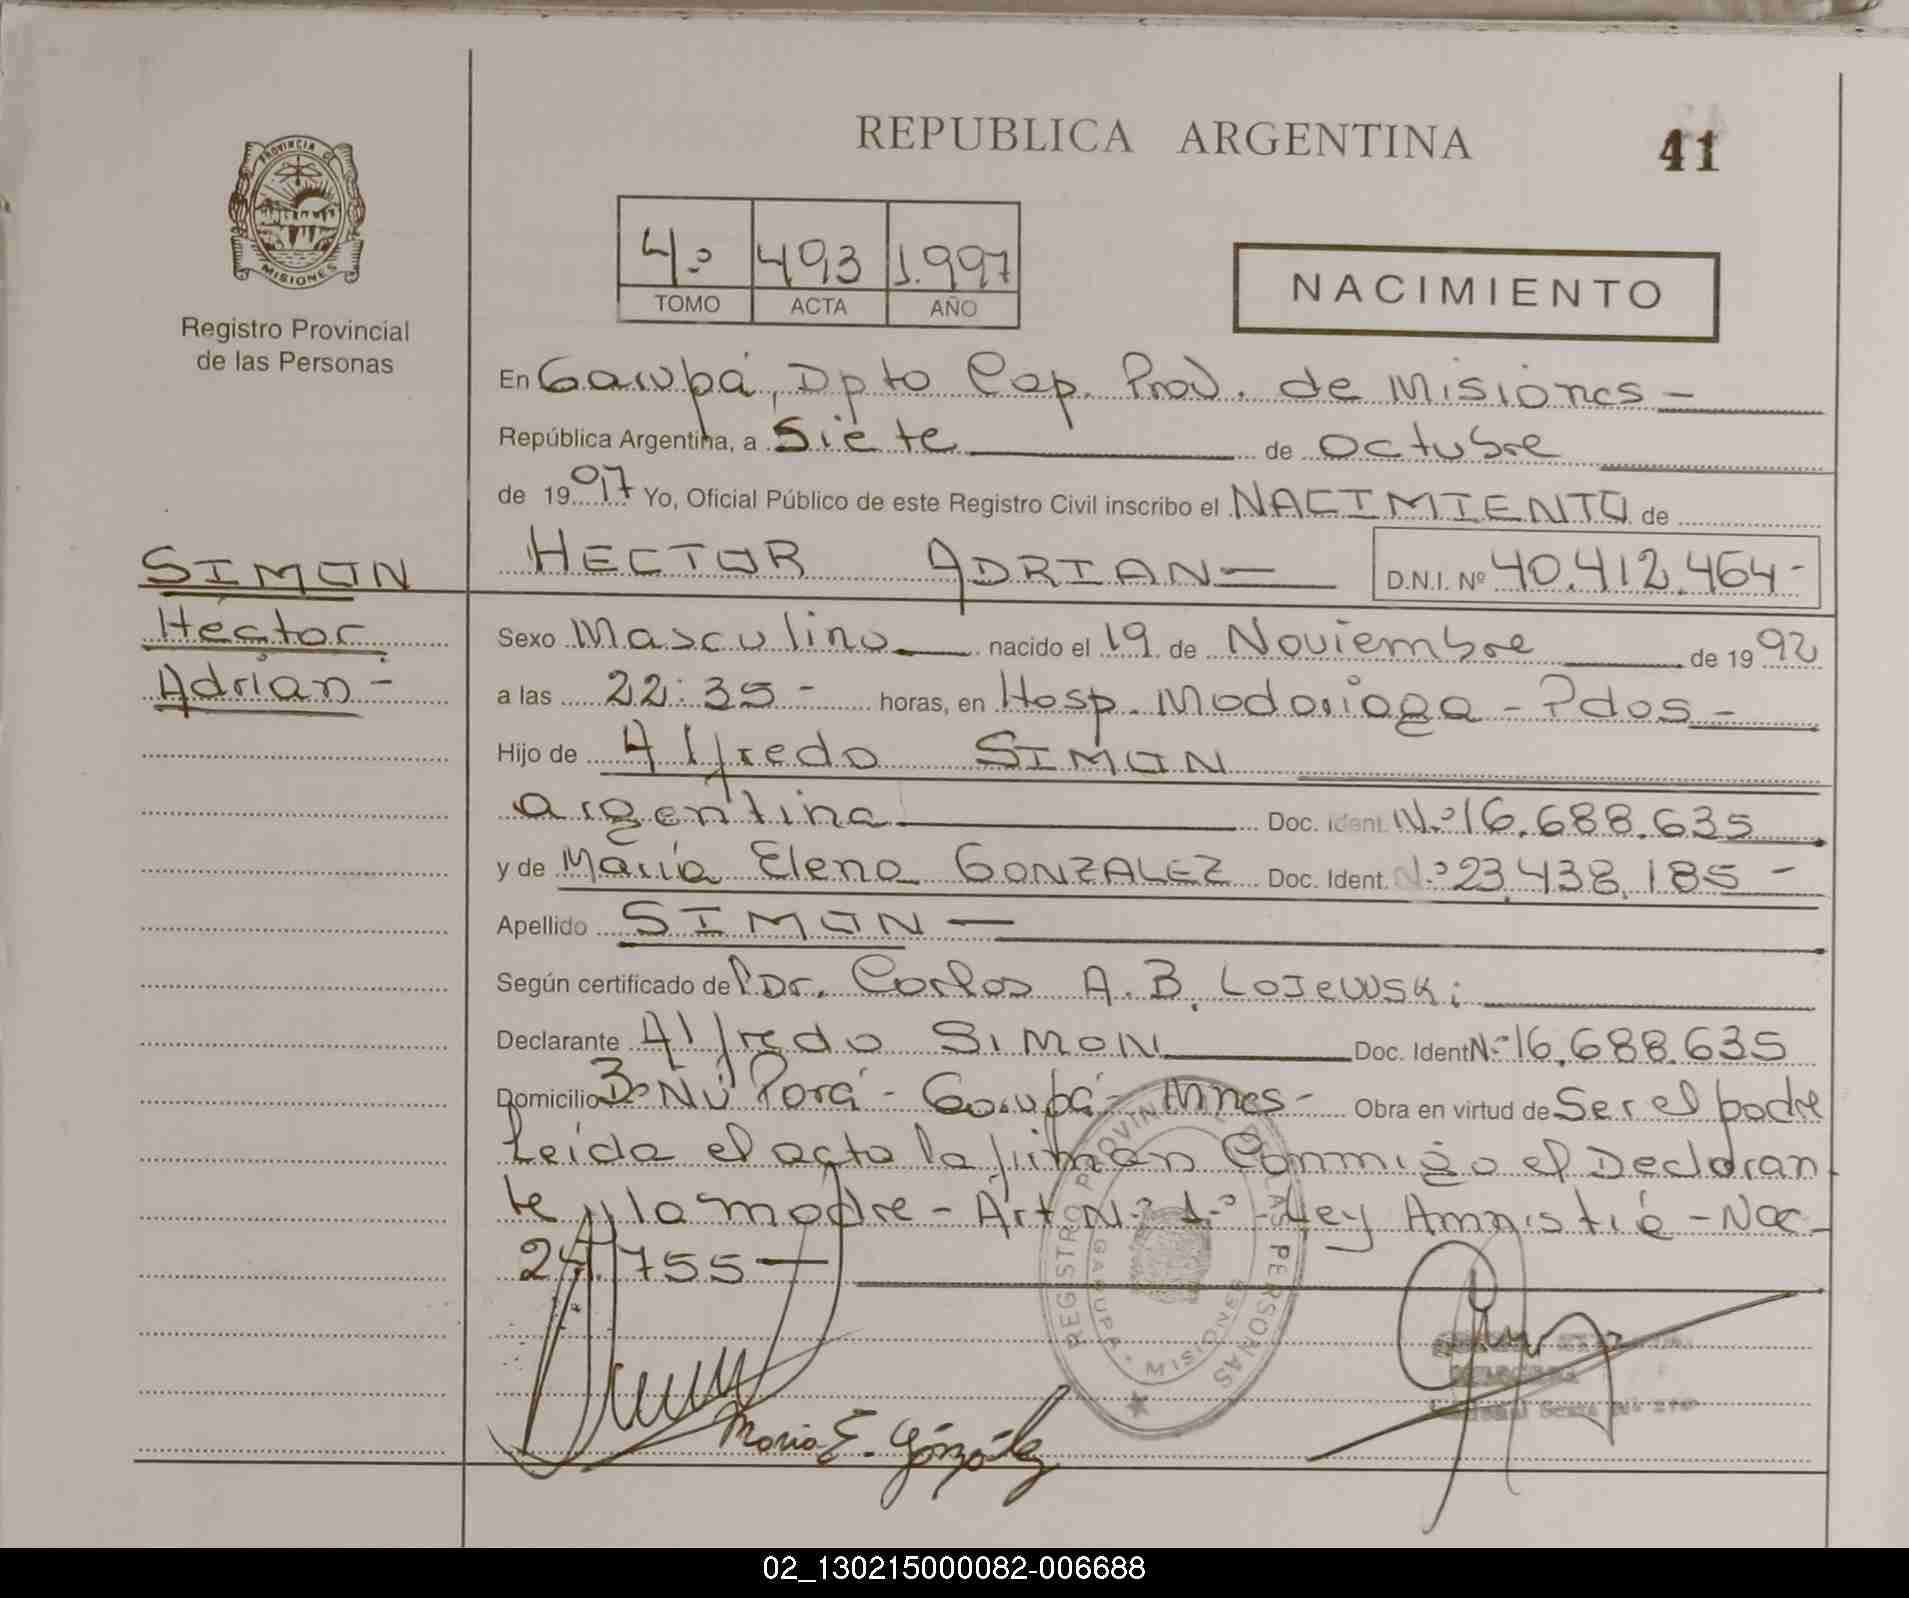 REPUBLICA ARGENTINA
41
PROVINCIA DE
MISIONES
Registro Provincial
de las Personas
4º 493 1.997
TOMO ACTA AÑO
NACIMIENTO
En Garupá, Dpto Cap. Prov. de Misiones -
República Argentina, a Siete de octubre
de 1997 Yo, Oficial Público de este Registro Civil inscribo el NACIMIENTO de
SIMON
Hector
Adrian -
HECTOR ADRIAN - D.N.I. Nº 40.412.464-
Sexo Masculino nacido el 19 de Noviembre de 1992
a las 22:35 - horas, en Hosp. Madariaga - Pdas -
Hijo de Alfredo SIMON
argentina Doc. Ident. N.º 16.688.635
y de María Elena GONZALEZ Doc. Ident. N.º 23.438.185 -
Apellido SIMON -
Según certificado de Dr. Carlos A. B. Lojewski
Declarante Alfredo SIMON Doc. Ident N.º 16.688.635
Domicilio Bº Ñu Porá - Garupá - Mnes - Obra en virtud de Ser el padre
Leída el acta la firman Conmigo el Declaran
te y la madre - Art N.º 1.º Ley Amnistía - Nac -
24.755 -
REGISTRO PROVINCIAL DE LAS PERSONAS
GARUPA - MISIONES
Maria E. González
02_130215000082-006688